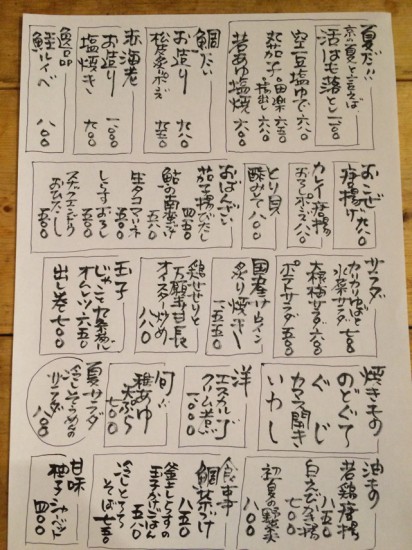 夏だ!!
京の夏と言えば
活はも落とし 一二〇〇
空豆塩ゆで 六八〇
茄子の田楽 六五〇
若あゆ塩焼 六八〇
鯛だい
お造り 九八〇
赤海老
お造り 一〇〇〇
塩焼き
逸品
鮭ルイベ 八〇〇
おこぜ
唐揚げ
カレイ唐揚
おろしポン酢 八〇〇
とり貝
酢みそ 八〇〇
おばんざい
茄子揚げだし 四五〇
生タコマリネ 五八〇
しらすおろし 五〇〇
スナックエンドウ
おひたし 五〇〇
サラダ
カリカリゆばと
水菜サラダ 七〇〇
大根梅サラダ 六〇〇
ポテトサラダ 五〇〇
炙り焼き
鶏せせりと
万願寺甘長
オイスター炒め 八八〇
玉子
じゃこと九条ねぎ
オムレツ 六五〇
出し巻 七〇〇
焼きもの
のどぐろ
ぐじ
カマス開き
いわし
洋
クリーム煮 一〇〇〇
旬!!
稚あゆ
天ぷら 七〇〇
夏サラダ
冷しそうめんの
サラダ 八〇〇
油もの
若鶏唐揚 七五〇
白えび唐揚 七〇〇
初夏の野菜天 八〇〇
食事
鯛茶づけ 八五〇
釜上しらすの
玉子かけごはん 五八〇
冷しとろろ
そば 七五〇
甘味
柚子シャーベット 四〇〇